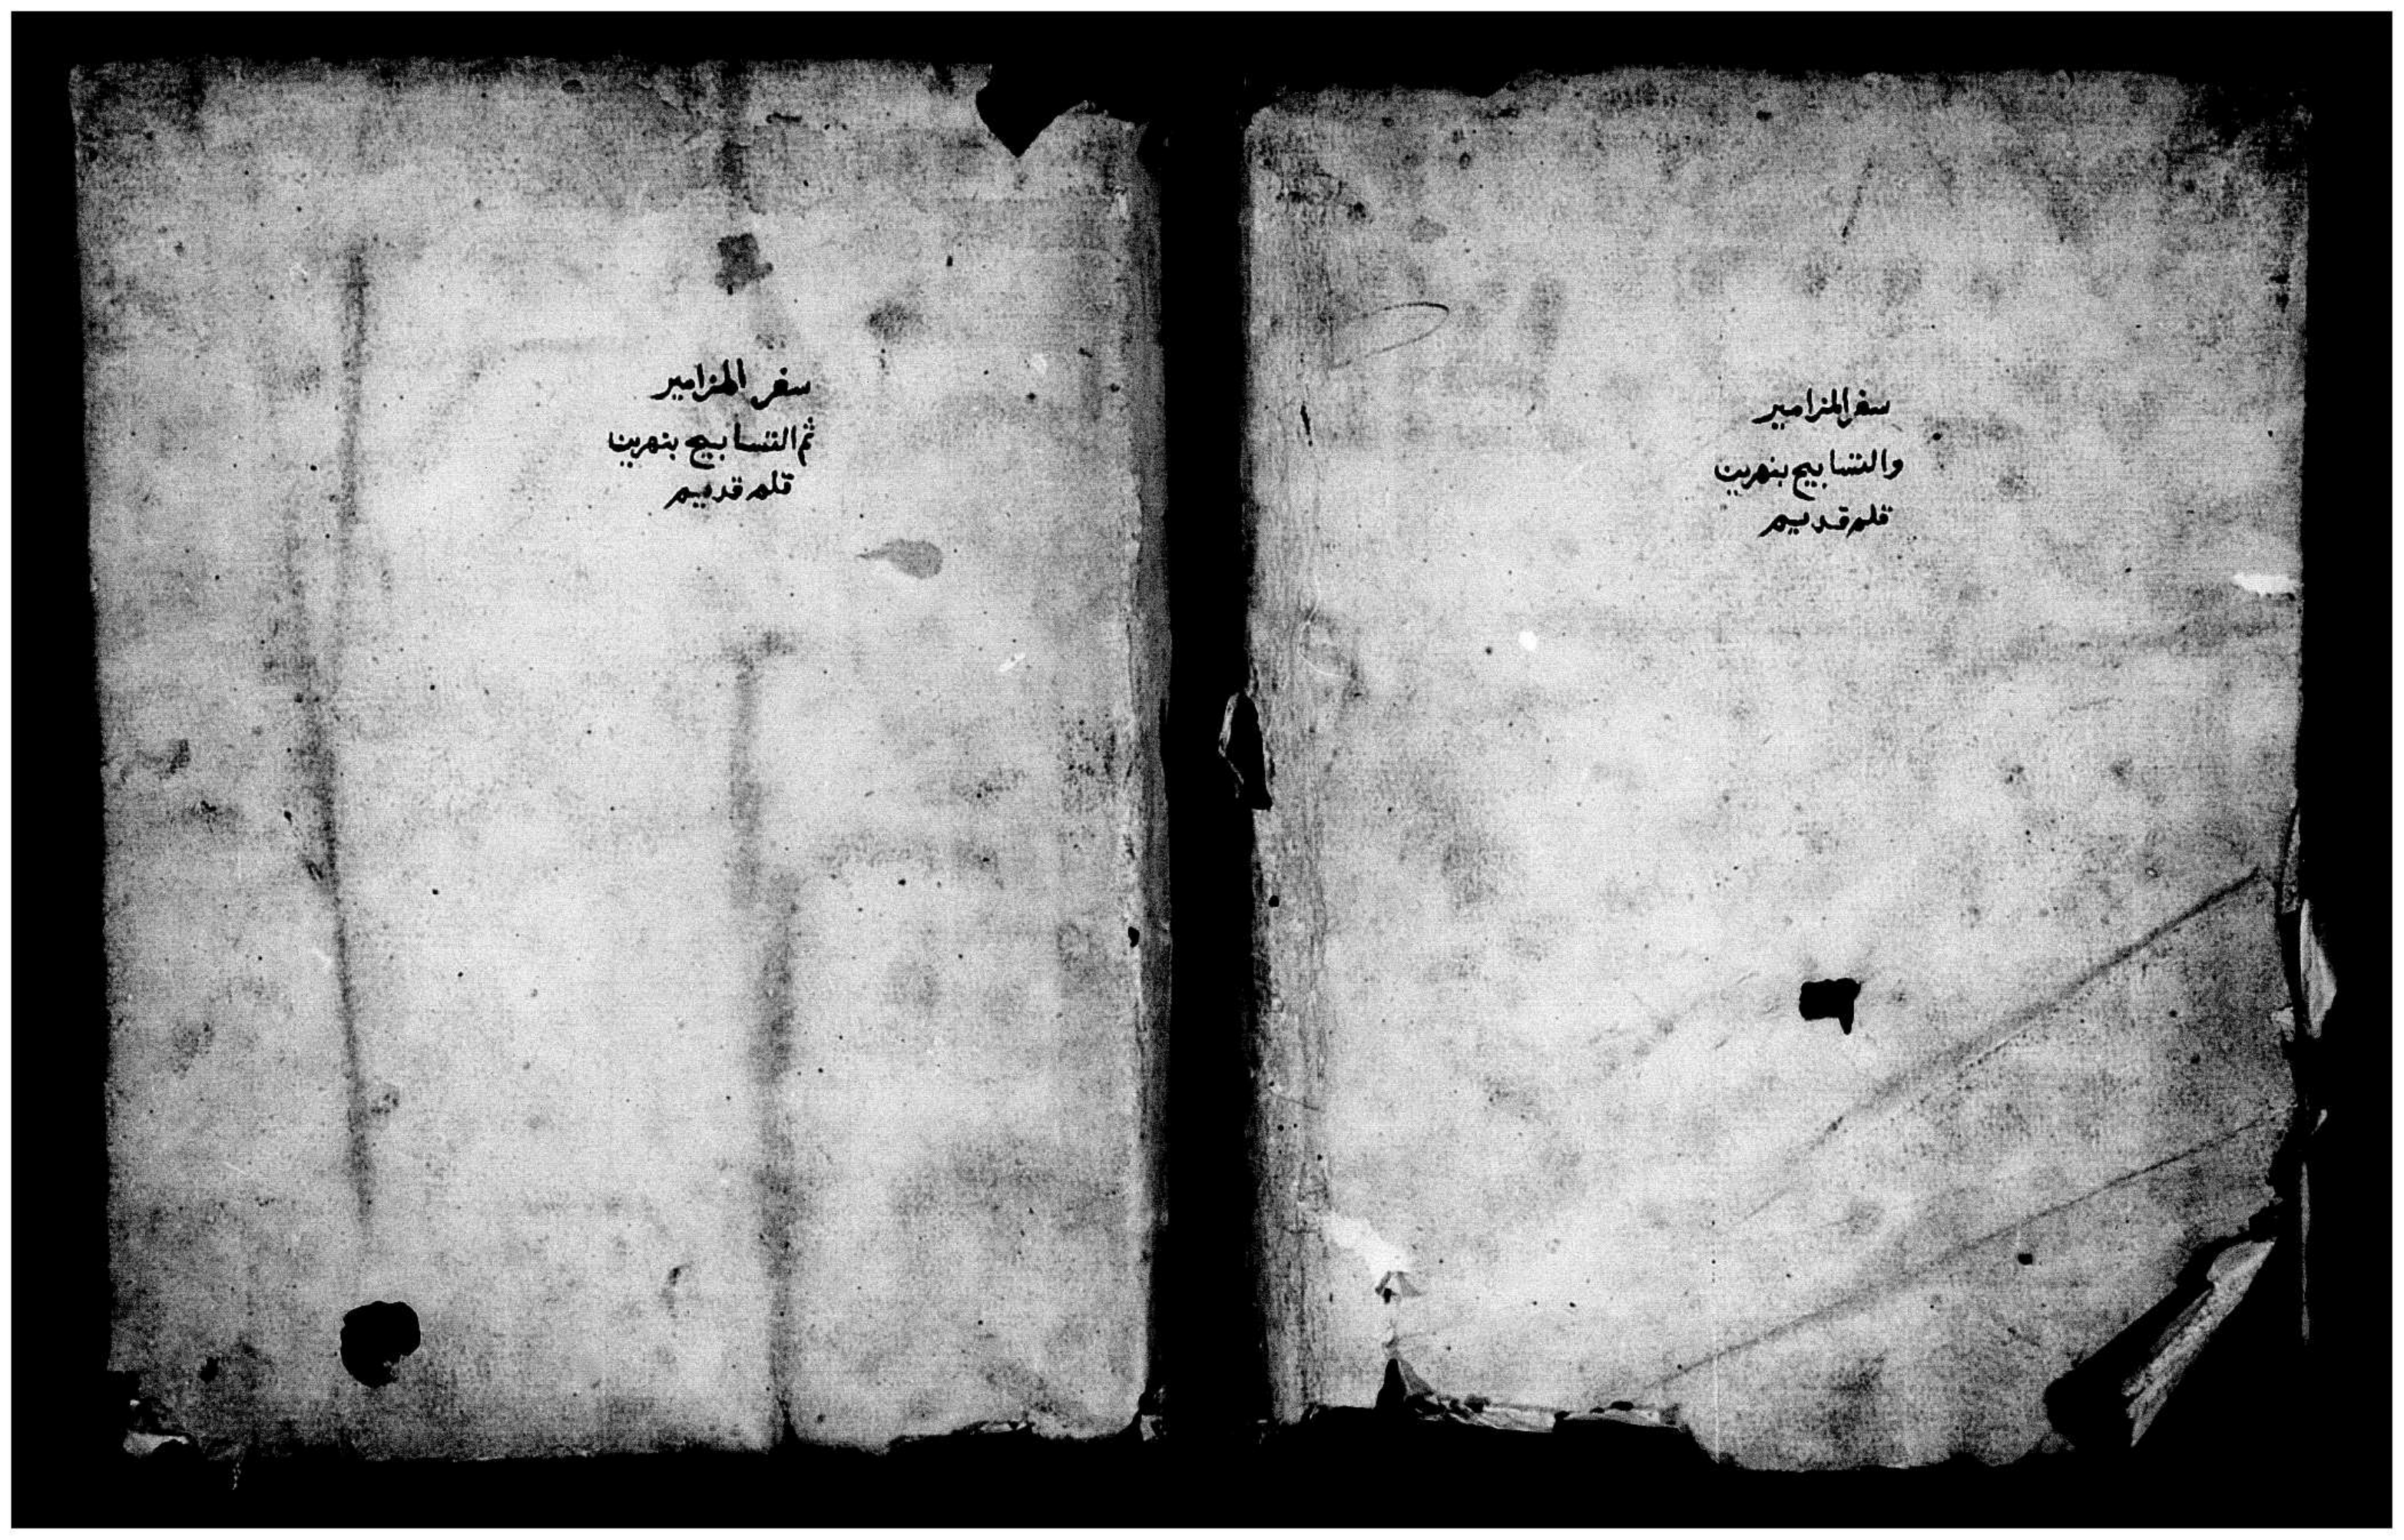 سفر المزامير
والتسابيح بنهرين
قلم قديم
سفر المزامير
ثم التسابيح بنهرين
قلم قديم